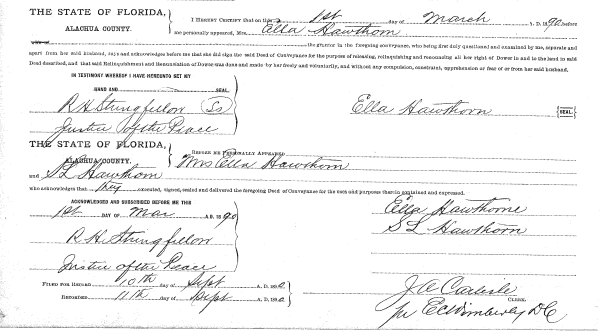 THE STATE OF FLORIDA,
ALACHUA COUNTY.
I HEREBY CERTIFY that on this 1st day of March A. D. 1890, before
me personally appeared, Mrs. Ella Hawthorn
the grantor in the foregoing conveyance, who being first duly questioned and examined by me, separate and
apart from her said husband, says and acknowledges before me that she did sign the said Deed of Conveyance for the purpose of releasing, relinquishing and renouncing all her right of Dower in and to the land in said
Deed described, and that said Relinquishment and Renunciation of Dower was done and made by her freely and voluntarily, and without any compulsion, constraint, apprehension or fear of or from her said husband.
IN TESTIMONY WHEREOF I HAVE HEREUNTO SET MY
HAND AND SEAL.
R H Stringfellow Ss Ella Hawthorn SEAL.
Justice of the Peace
THE STATE OF FLORIDA,
ALACHUA COUNTY.
BEFORE ME PERSONALLY APPEARED
Mrs Ella Hawthorn
and S L Hawthorn
who acknowledges that they executed, signed, sealed and delivered the foregoing Deed of Conveyance for the uses and purposes therein contained and expressed.
ACKNOWLEDGED AND SUBSCRIBED BEFORE ME THIS
1st DAY OF Mar A.D. 1890
Ella Hawthorne
S L Hawthorn
R. H. Stringfellow
Justice of the Peace
FILED FOR RECORD 10th day of Sept A. D. 1890
RECORDED 11th day of Sept A. D. 1890
J A Carlisle
CLERK.
pr E C Wimberly D C